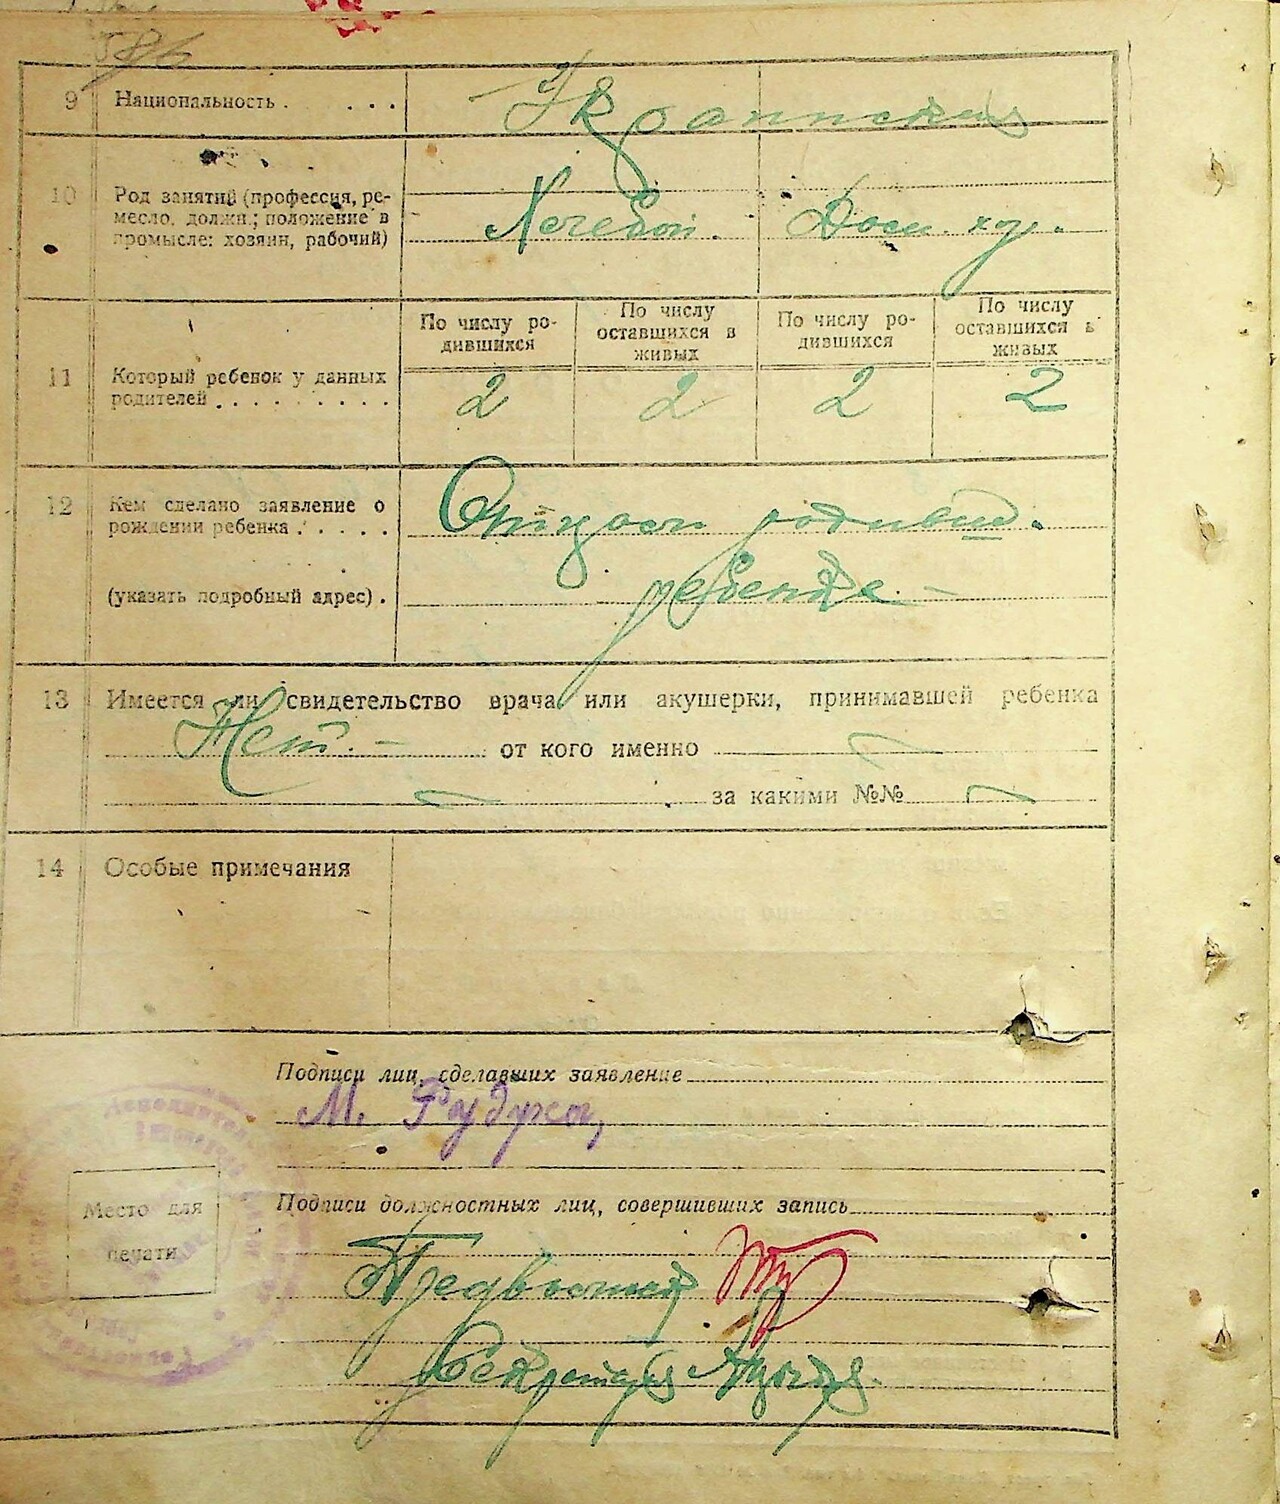 586
9 Национальность . . . . Украинская
10 Род занятий (профессия, ре-
месло, должн.; положение в
промысле: хозяин, рабочий)
Хлебоп. Дом. хоз.
11 Который ребенок у данных
родителей . . . . . . . . .
По числу ро-
дившихся
По числу
оставшихся в
живых
По числу ро-
дившихся
По числу
оставшихся в
живых
2 2 2 2
12 Кем сделано заявление о
рождении ребенка . . . . .
(указать подробный адрес) .
Отцом родивш.
ребенка. –
13 Имеется ли свидетельство врача или акушерки, принимавшей ребенка
Нет. – от кого именно
за какими №№
14 Особые примечания
Подписи лиц, сделавших заявление
М.
Подписи должностных лиц, совершивших запись
Место для
печати
Секретарь